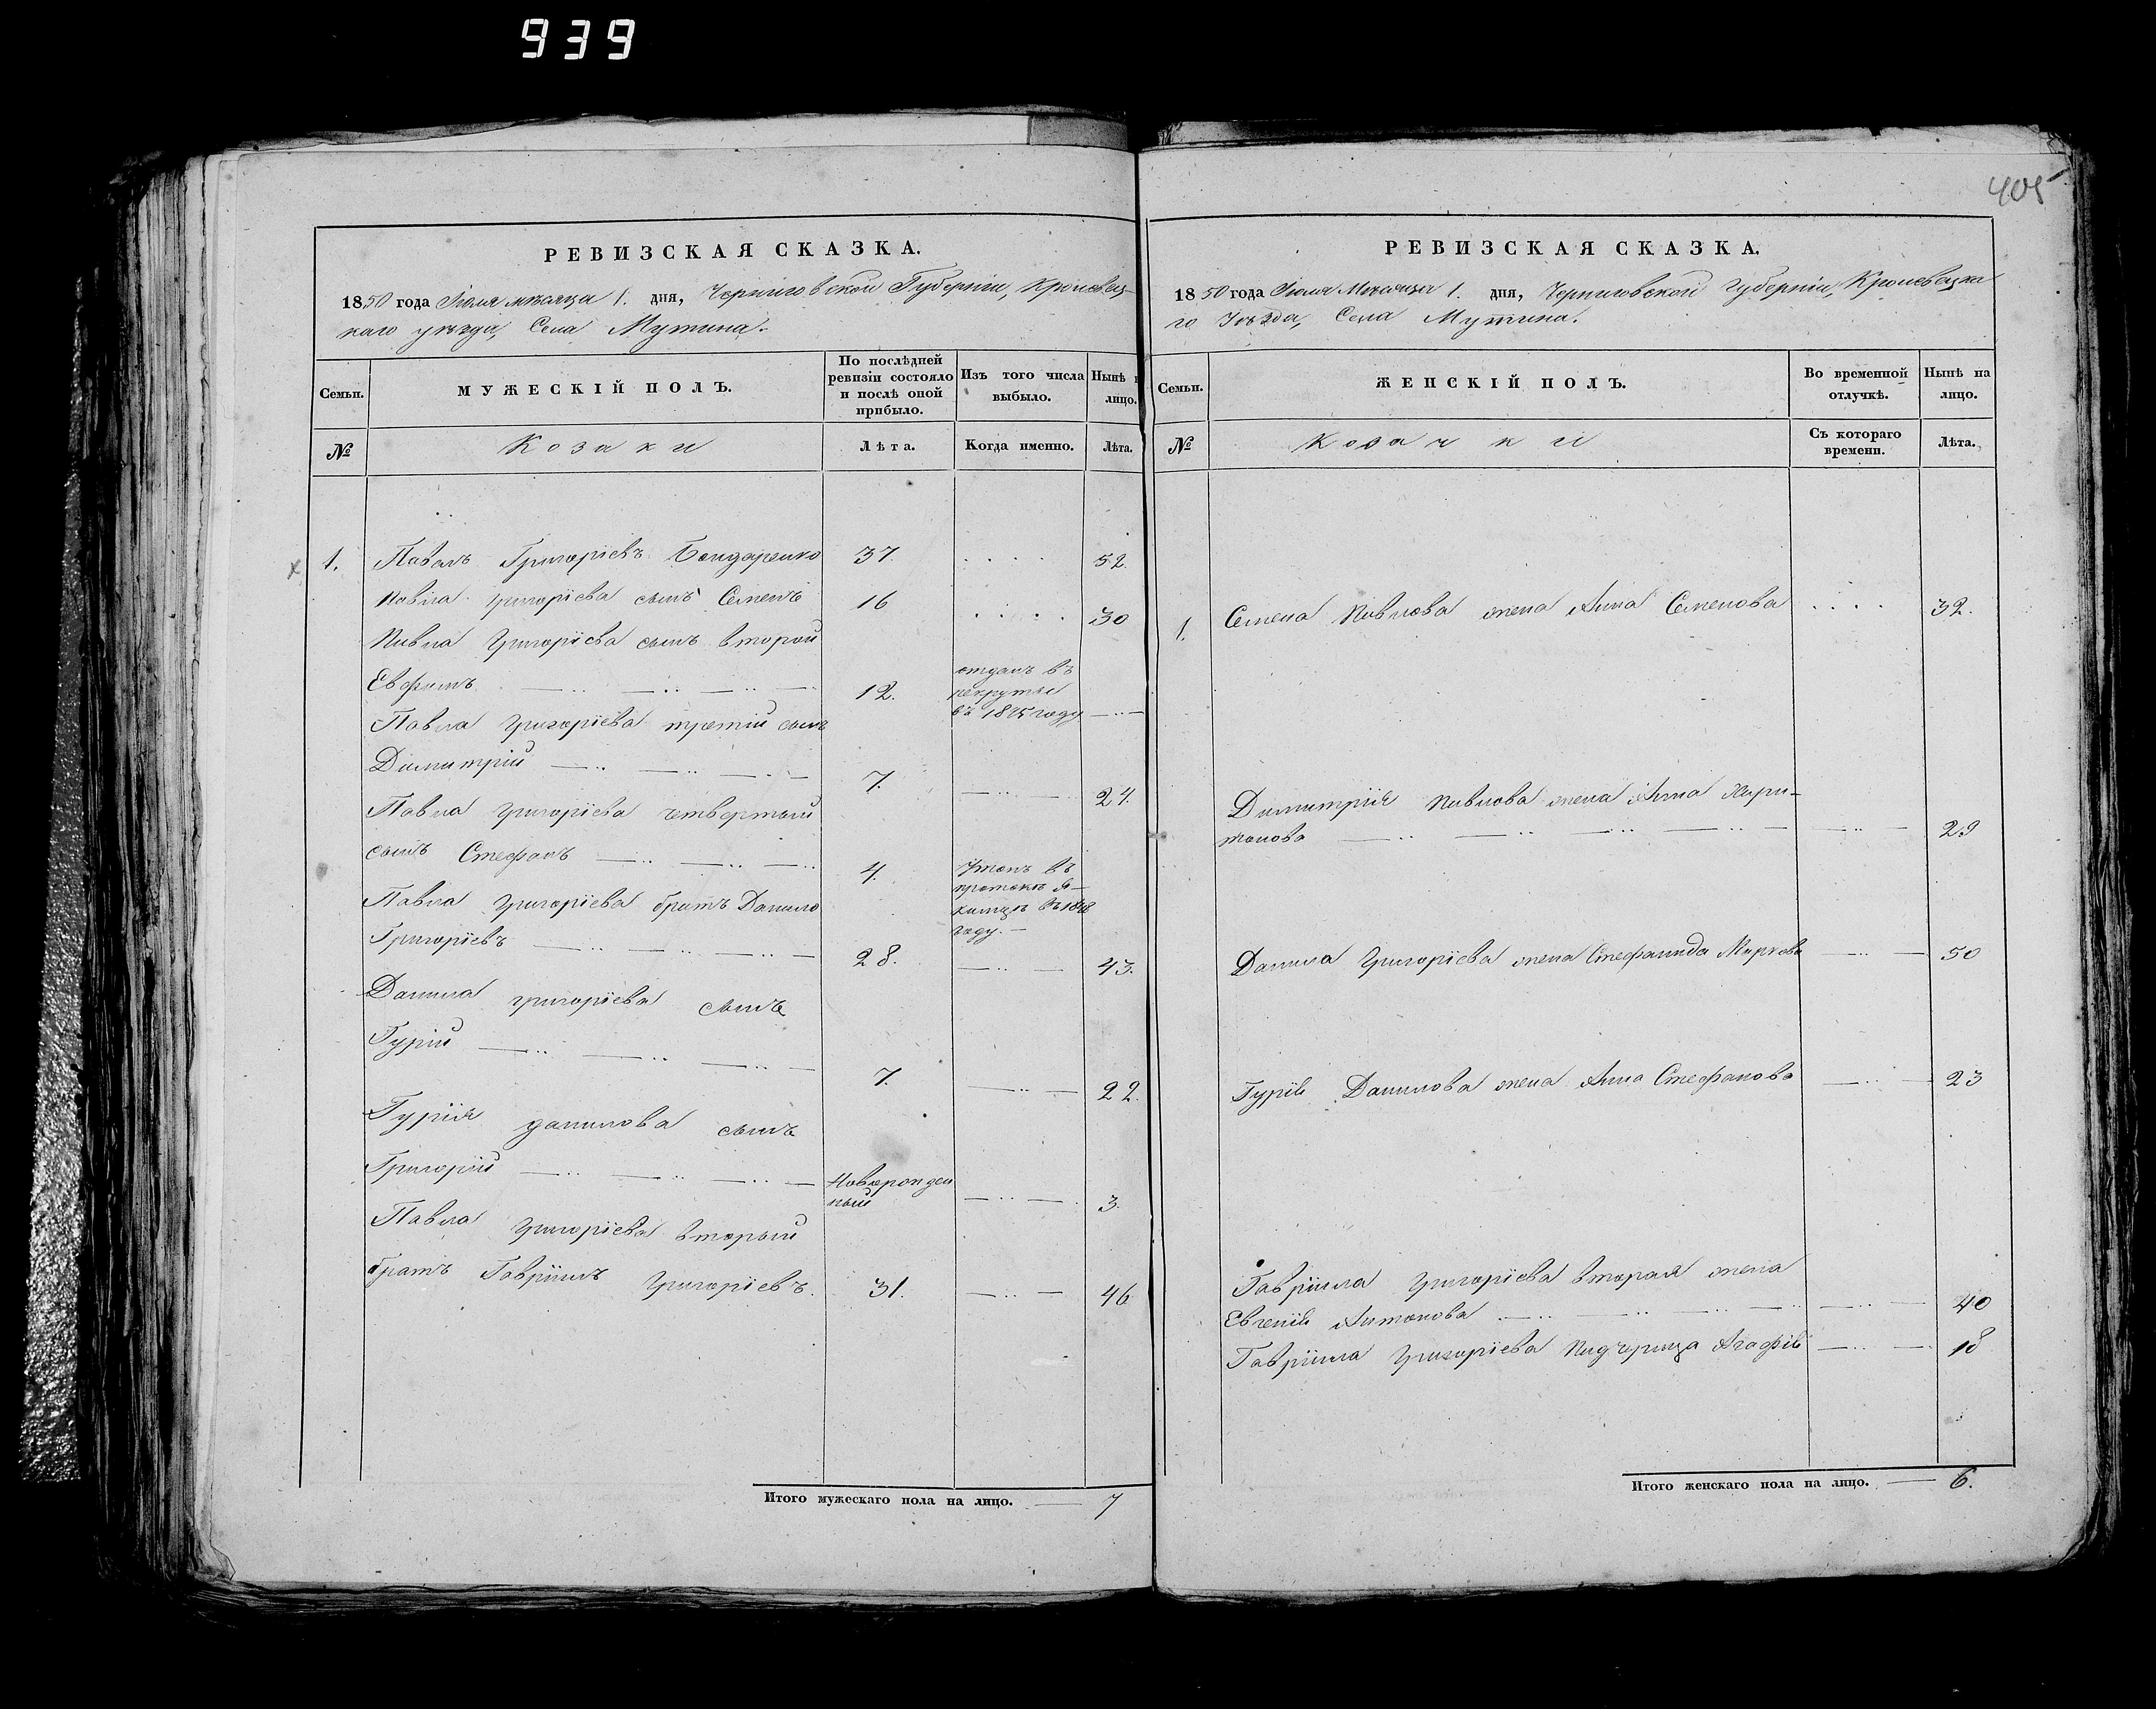 939
405
РЕВИЗСКАЯ СКАЗКА.
1850 года Іюля мѣсяца 1. дня, Черниговской Губерніи, Кролевец-
каго уѣзда, Села Мутина.
Семьи.
МУЖЕСКІЙ ПОЛЪ.
По послѣдней ревизіи состояло и послѣ оной прибыло.
Изъ того числа выбыло.
Нынѣ н лицо.
№
Козаки
Лѣта.
Когда именно.
Лѣта.
1. Павелъ Григоріевъ Бондаренко 37. . . . . 52.
Павла Григоріева сынъ Семенъ 16 . . . . 30
Павла Григоріева сынъ второй
Евфимъ 12. отданъ въ
рекруты
въ 1845 году
Павла Григоріева третій сынъ
Димитрій 7. 24.
Павла Григоріева четвертый
сынъ Стефанъ 4.
въ
въ 1848
году.
Павла Григоріева братъ Данило
Григоріевъ 28. 43.
Данила Григоріева сынъ
Гурій 7. 22.
Гурія Данилова сынъ
Григорій Новорожден
ный 3.
Павла Григоріева вторый
братъ Гавріилъ Григоріевъ. 31. 46
Итого мужескаго пола на лицо. 7
РЕВИЗСКАЯ СКАЗКА.
1850 года Іюля Мѣсяца 1. дня, Черниговской Губерніи, Кролевецка
го Уѣзда, Села Мутина.
Семьи.
ЖЕНСКІЙ ПОЛЪ.
Во временной отлучкѣ.
Нынѣ на лицо.
№
Козачки
Съ котораго времени.
Лѣта.
1. Семена Павлова жена Анна Семенова . . . . 32.
Димитрія Павлова жена Анна Хари-
тонова 29
Данила Григоріева жена Стефанида Маркова 50
Гурія Данилова жена Анна Стефанова 23
Гавріила Григоріева вторая жена
Евгенія Антонова 40
Гавріила Григоріева падчерица Агафія 18
Итого женскаго пола на лицо. 6.